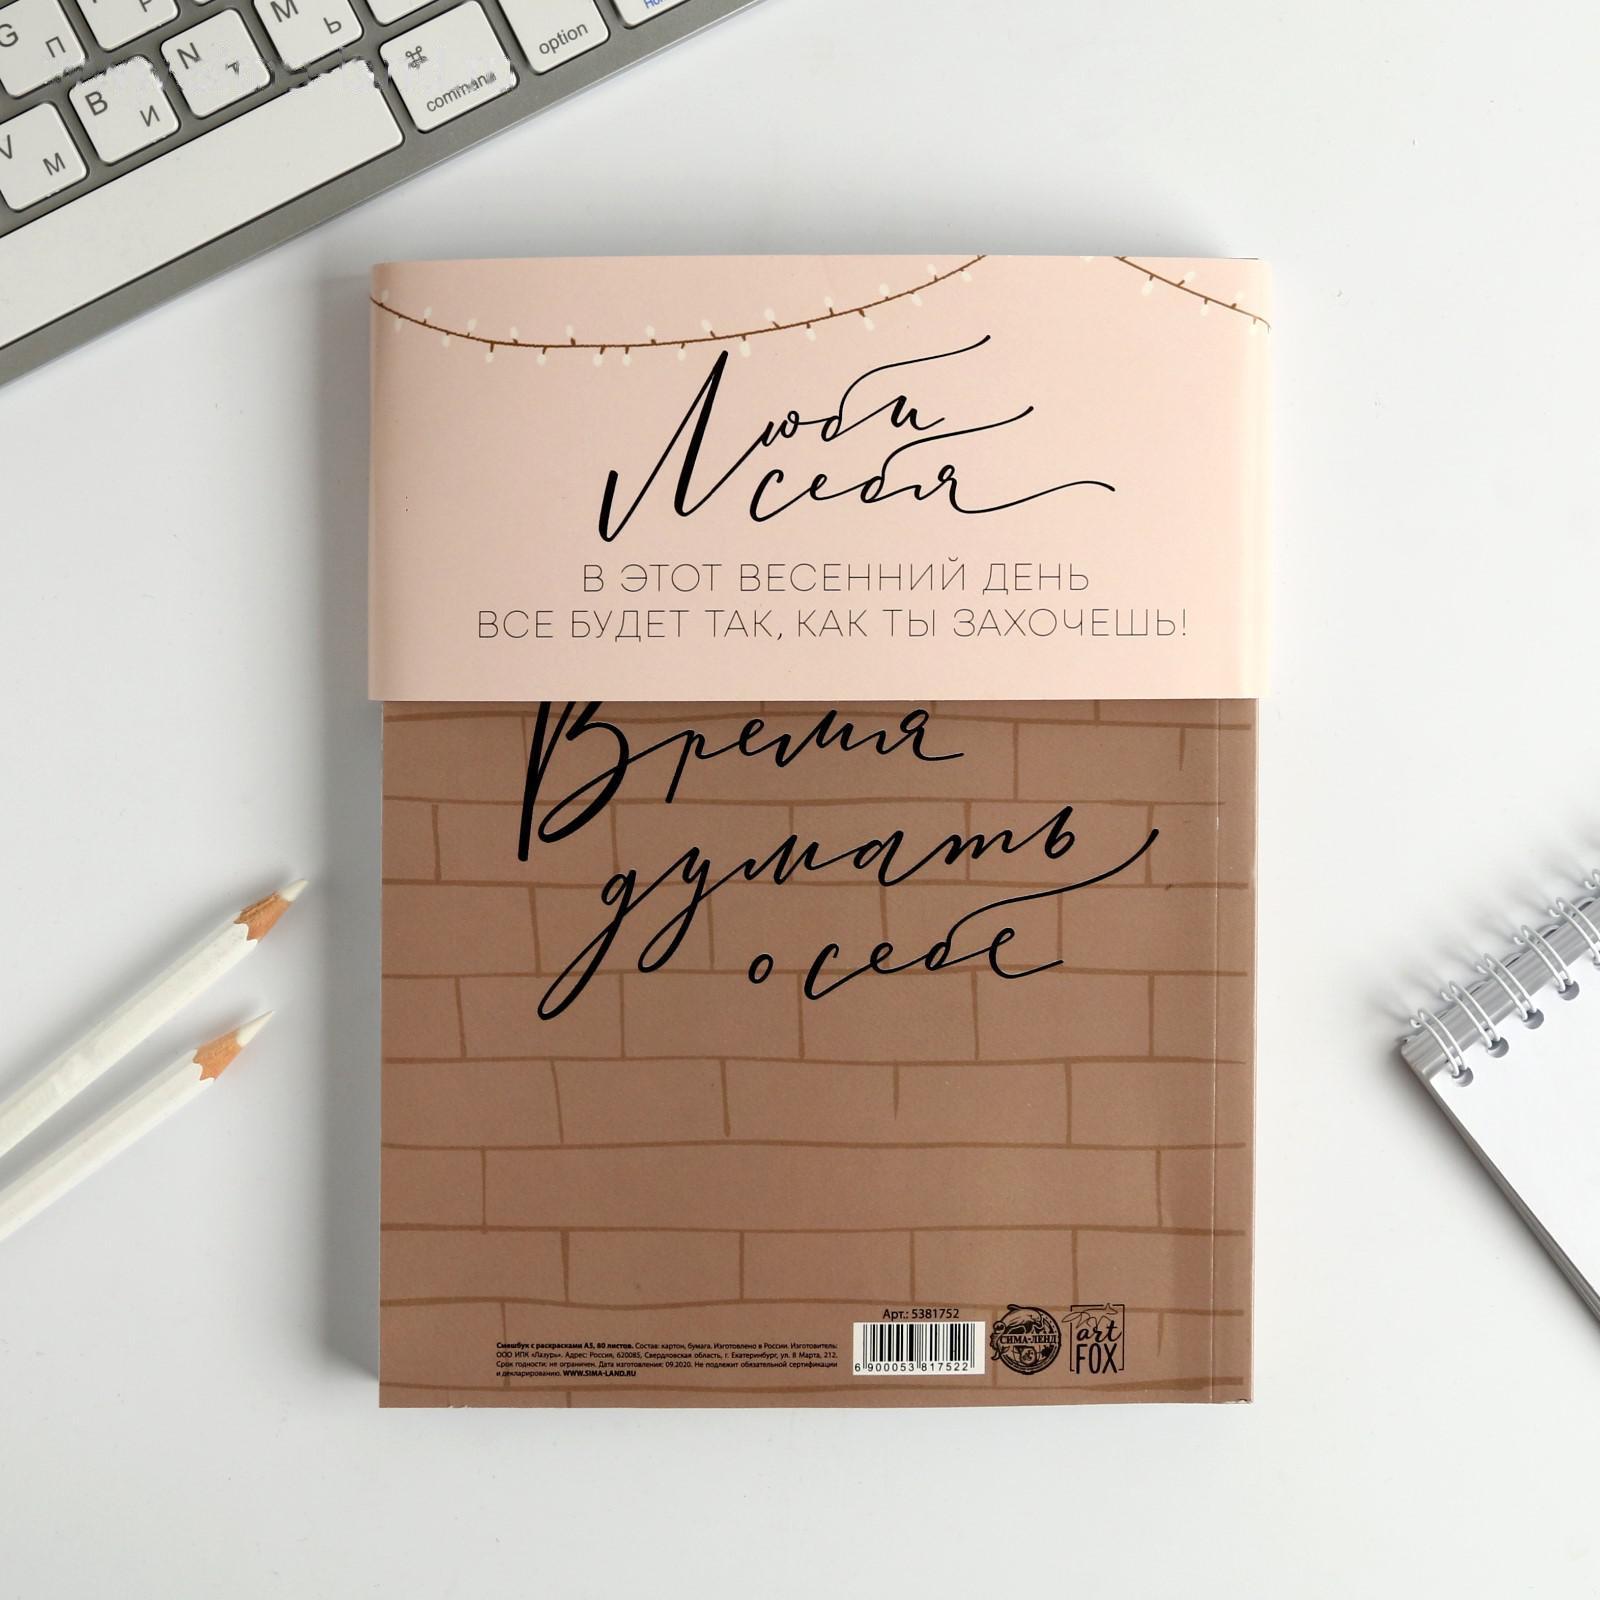 G П
Р
М Ь
N Т
В И
V М
⌘ command
option
Люби
себя
В ЭТОТ ВЕСЕННИЙ ДЕНЬ
ВСЕ БУДЕТ ТАК, КАК ТЫ ЗАХОЧЕШЬ!
Время
думать
о себе
Арт.: 5381752
6 900053 817522
СИМА-ЛЕНД
art
FOX
Смешбук с раскрасками А5, 80 листов. Состав: картон, бумага. Изготовлено в России. Изготовитель:
ООО ИПК «Лазурь». Адрес: Россия, 620085, Свердловская область, г. Екатеринбург, ул. 8 Марта, 212.
Срок годности: не ограничен. Дата изготовления: 09.2020. Не подлежит обязательной сертификации
и декларированию. WWW.SIMA-LAND.RU